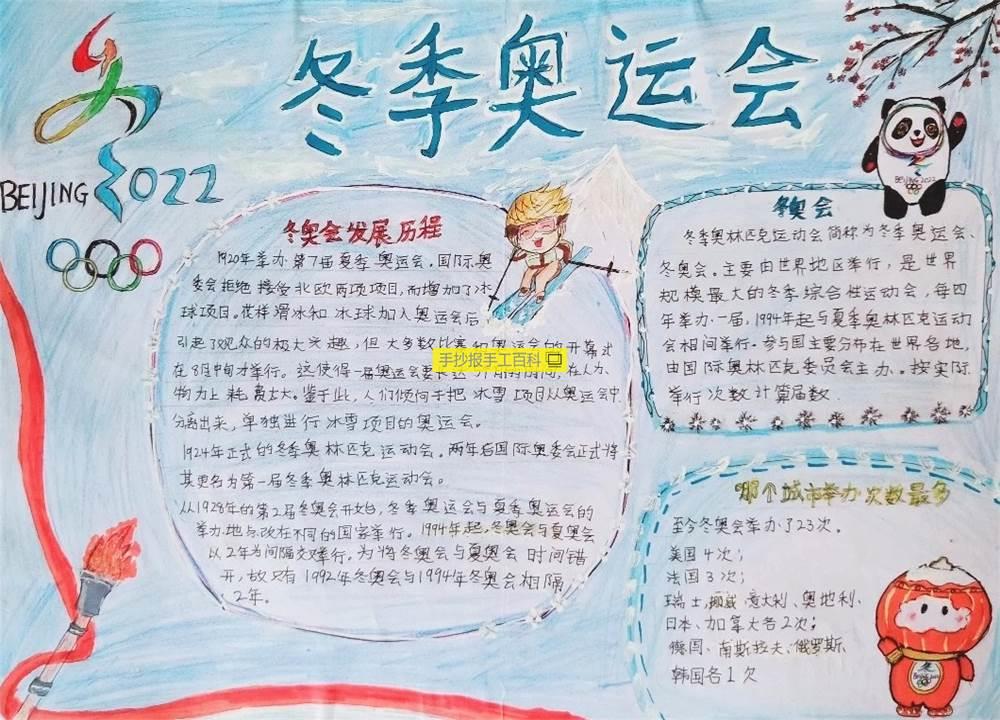 冬季奥运会
BEIJING 2022
冬奥会发展历程
1920年举办第7届夏季奥运会.国际奥
委会拒绝接受北欧两项项目,而增加了冰
球项目。花样滑冰和冰球加入奥运会后
引起了观众的极大兴趣,但大多数比赛和奥运会的开幕式
在8月中旬才举行。这使得一届奥运会要长达 在人力、
物力上耗费太大。鉴于此,人们倾向于把冰雪项目从奥运会中
分离出来,单独进行冰雪项目的奥运会。
1924年正式的冬季奥林匹克运动会。两年后国际奥委会正式将
其更名为第一届冬季奥林匹克运动会。
从1928年的第2届冬奥会开始,冬季奥运会与夏季奥运会的
举办地与改在不同的国家举行。1994年起,冬奥会与夏奥会
以2年为间隔交举行。为将冬奥会与夏奥会时间错
开,故只有1992年冬奥会与1994年冬奥会相隔
2年。
手抄报手工百科
BEIJING 2022
冬奥会
冬季奥林匹克运动会简称为冬季奥运会、
冬奥会.主要由世界地区举行,是世界
规模最大的冬季综合性运动会,每四
年举办一届,1994年起与夏季奥林匹克运动
会相间举行.参与国主要分布在世界各地,
由国际奥林匹克委员会主办.按实际
举行次数计算届数.
哪个城市举办次数最多
至今冬奥会举办了23次.
美国4次;
法国3次;
瑞士,挪威,意大利、奥地利、
日本、加拿大各2次;
德国、南斯拉夫、俄罗斯、
韩国各1次